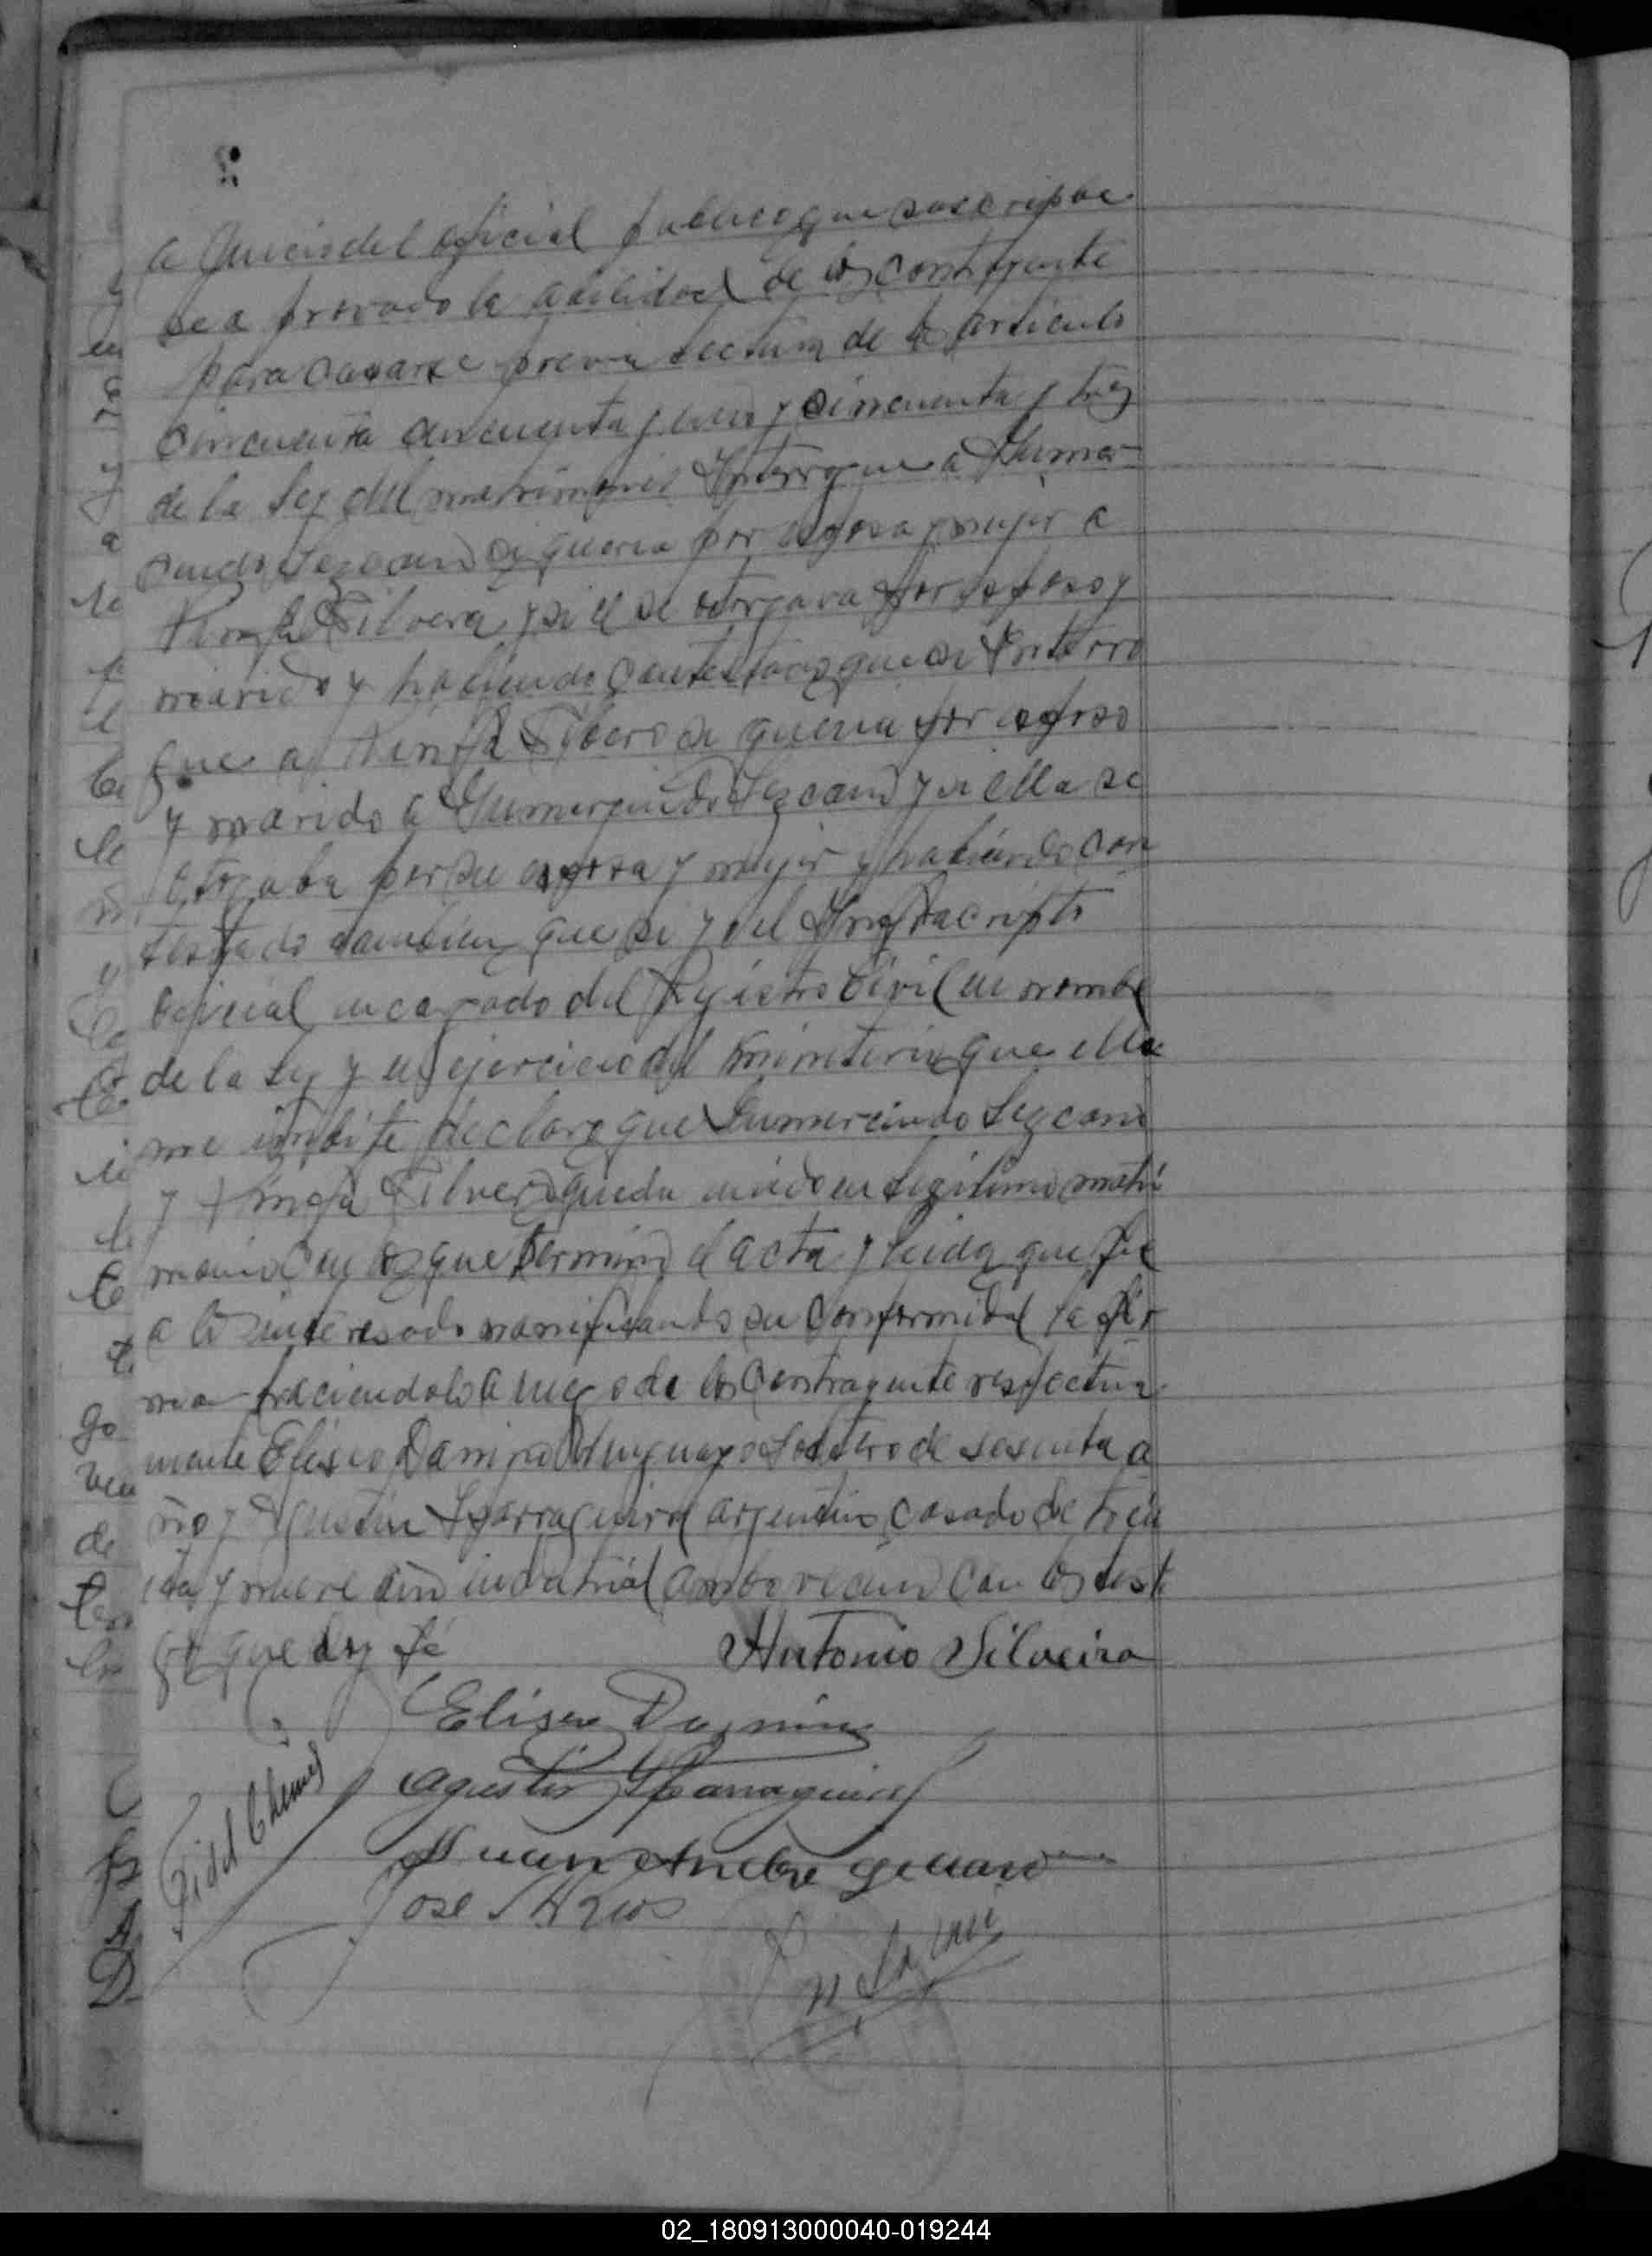 a Juicio del oficial publico que suscripbe
se a provado la abilidad de los contrayente
para casarse previa lectura de lo articulo
cincuenta cincuenta y uno y cincuenta y tres
de la Ley del matrimonio Interrogue a Gumer
cindo Lezcano si queria por esposa y mujer a
Ninfa Silvera y si el se otorgava por esposo y
marido y habiendo contestado que si Interro
gue a Ninfa Silvera si queria por esposo
y marido a Gumercindo Lezcano y si ella se
otorgaba por su esposa y mujer y habiendo con
testado tambien que si y el Infrascripto
oficial encargado del Registro Civil en nombre
de la Ley y en ejercicio del ministerio que ella
me imbite declaro que Gumercindo Lezcano
y Ninfa Silvera queda unido en legitimo matri
monio con lo que termino el acta y leida que fue
a lo interesado manifestando su conformidad la fir
man haciendolo a ruego de los contrayente respectiva
mente Eliseo Uruguayo soltero de sesenta a
ño y Agustin Yparraguirre argentino casado de trein
ta y nueve año industrial ambo vecino con los testi
go que doy fé Antonio Silveira
Eliseo
Agustin Yparraguirre
Fidel
Juan Andre
Jose
02_180913000040-019244